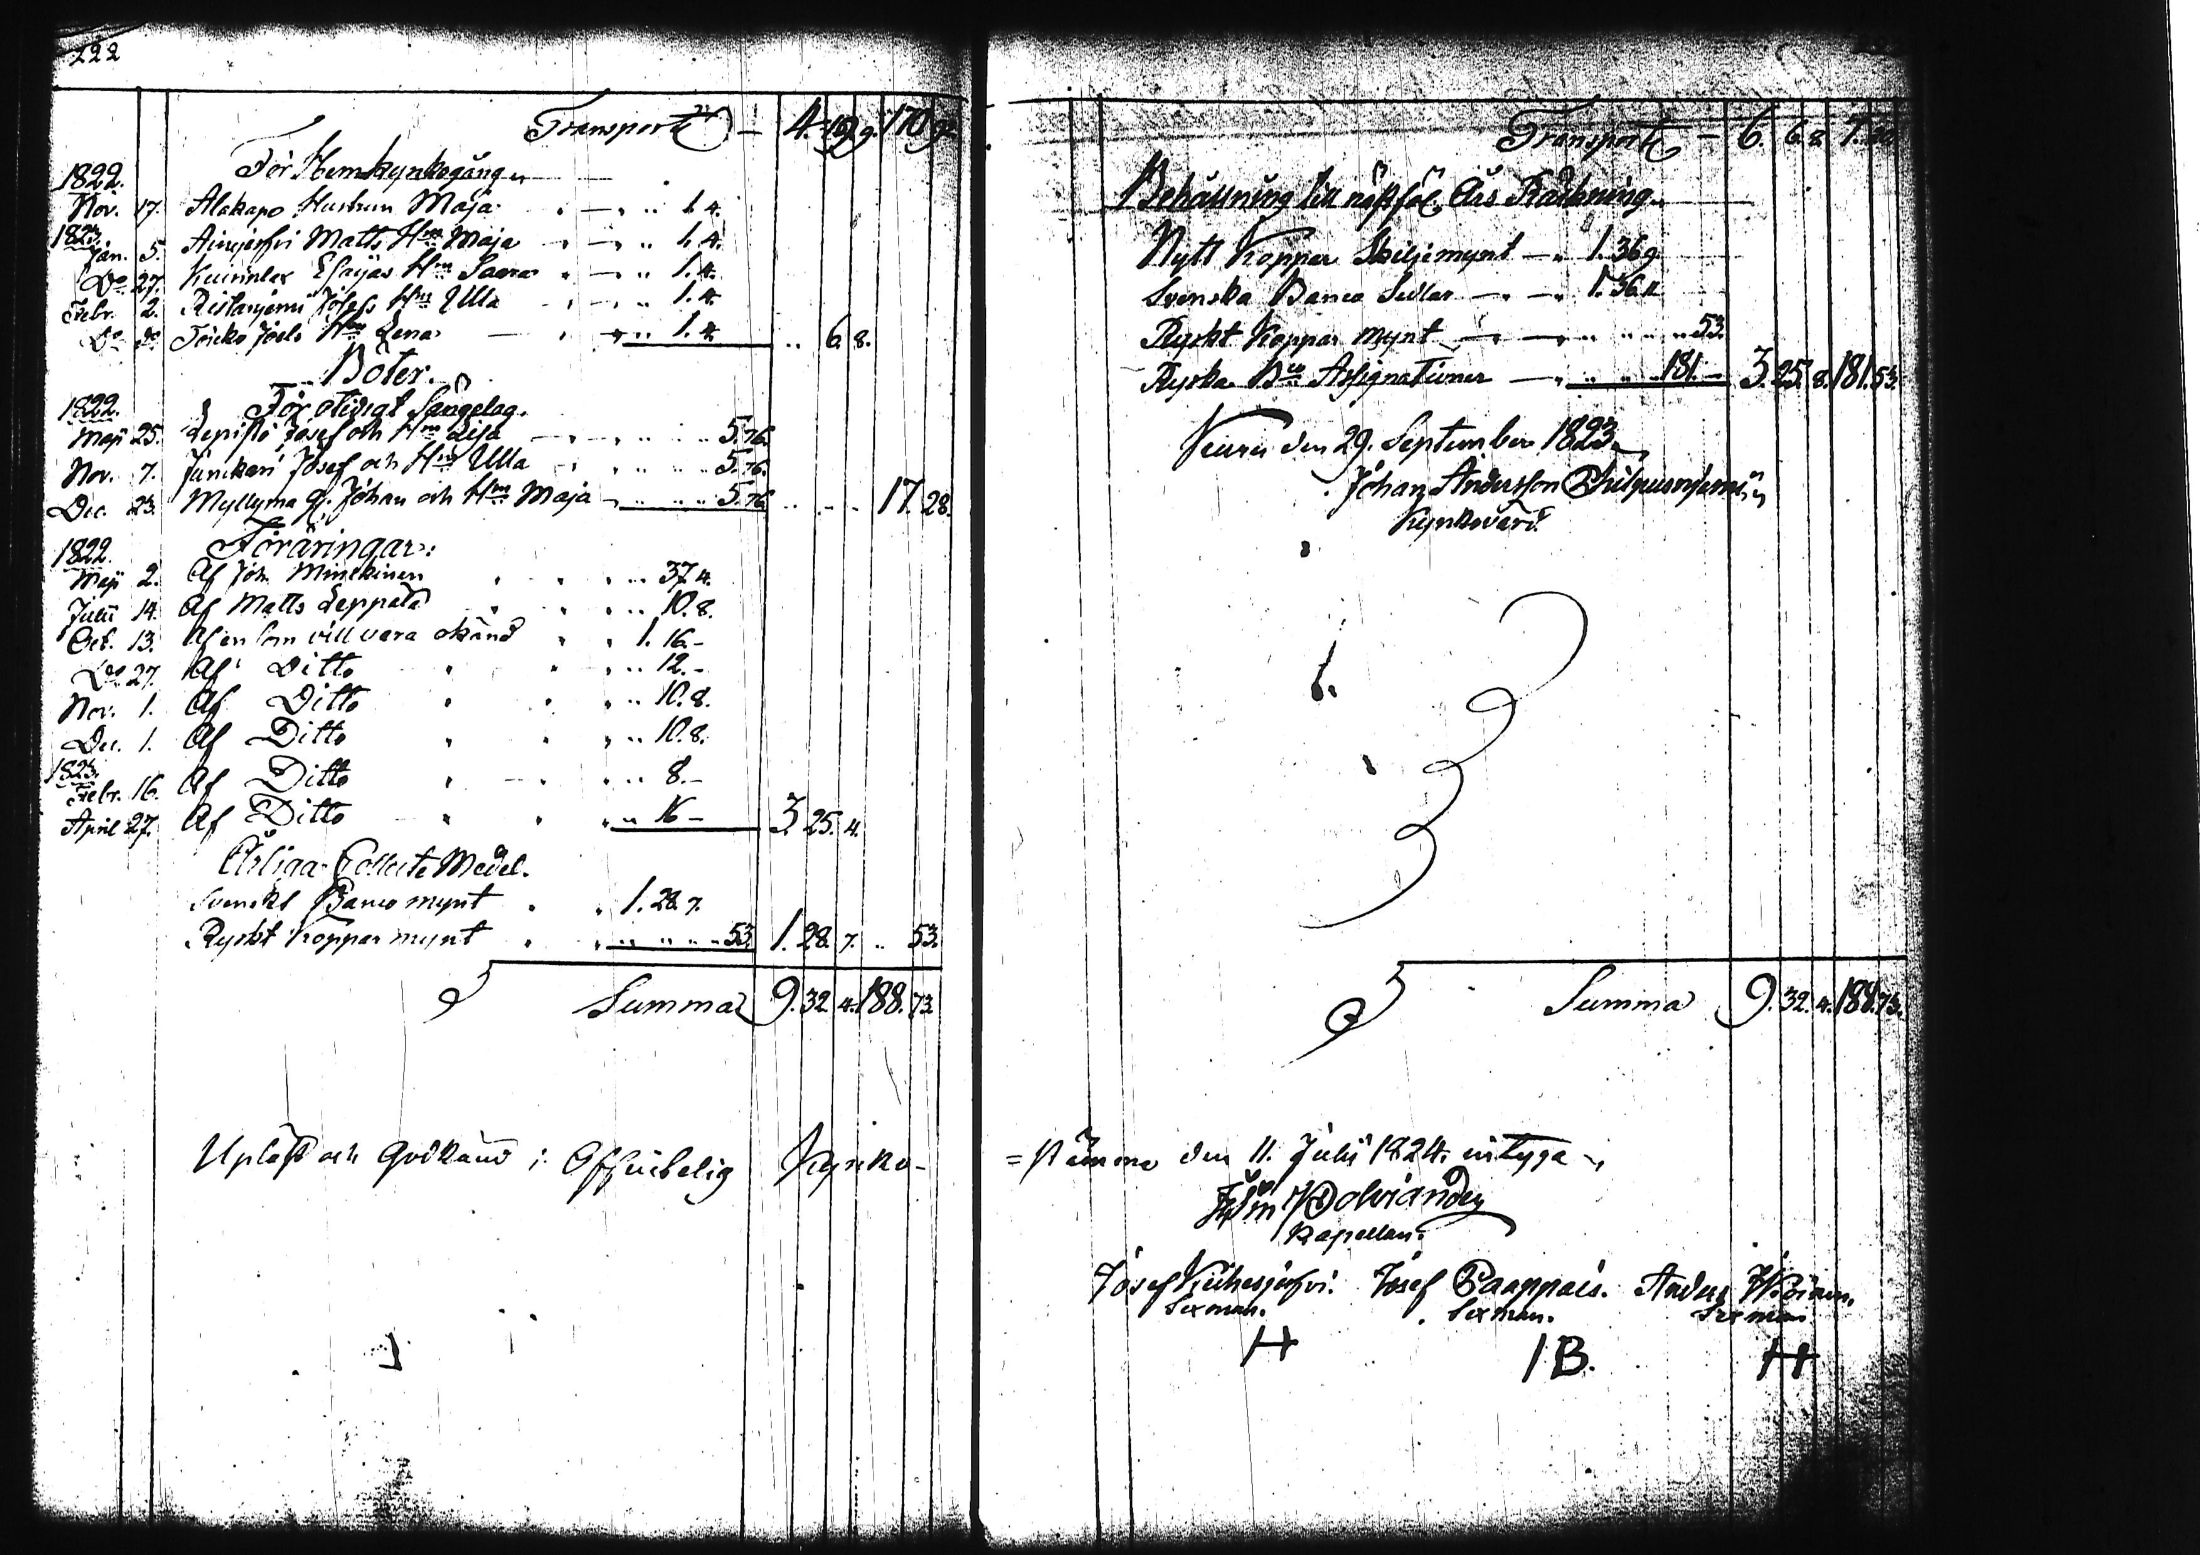 222
Transport — 4. 19. 9. 170 92
För Hemkyrkogång
1822.
Nov. 17. Alakapo Hustrun Maja 1. 4.
1823.
Jan. 5. Ainejerfvi Matts H:n Maja 1. 4.
Do 27. Esaijas H:n Saara 1. 4.
Febr. 2. Josefs H:n Ulla 1. 4.
Do do H:n Lena 1. 4. 6. 8.
Böter.
För otidigt Sängelag.
1822.
Maji 25. Lepistö Josef och H:n Lisa 5. 76.
Nov. 7. Josef och H:n Ulla 5. 76.
Dec. 23. Myllymä Johan och H:n Maja 5. 76. 17. 28.
Föräringar:
1822.
Maji 2. Af Joh. Minckinen 37. 4.
Julii 14. Af Matts Leppälä 10. 8.
Oct. 13. Af en som vill vara okänd 1. 16. –
Do 27. Af Ditto 12. –
Nov. 1. Af Ditto 10. 8.
Dec. 1. Af Ditto 10. 8.
1823.
Febr. 16. Af Ditto 8. –
April 27. Af Ditto 16 – 3. 25. 4.
Årliga Collecte Medel.
Svenskt Banco mynt 1. 28. 7.
Ryskt Koppar mynt 53. 1. 28. 7. 53.
Summa 9. 32. 4. 188. 73.
Upläst och Godkänd i Offentelig Kyrko-
Transport — 6. 6. 8. 7. 20
Behållning till nästföl. Års Räkning
Nytt Koppar Skiljemynt — 1. 36. 9.
Svenska Banco Sedlar — 1. 36. 11
Ryskt Koppar mynt — 53.
Ryska B:co Assignationer — 181. – 3. 25. 8. 181. 53.
Keuru den 29. September 1823.
Johan Andersson
Kyrkovärd.
Summa 9. 32. 4. 188. 73.
= stämma den 11. Julii 1824. intyga
Wolviander
Kapellan.
Josef Kiihesjerfvi. Josef Paappais. Anders
Sexman. Sexman. Sexman
H IB. H